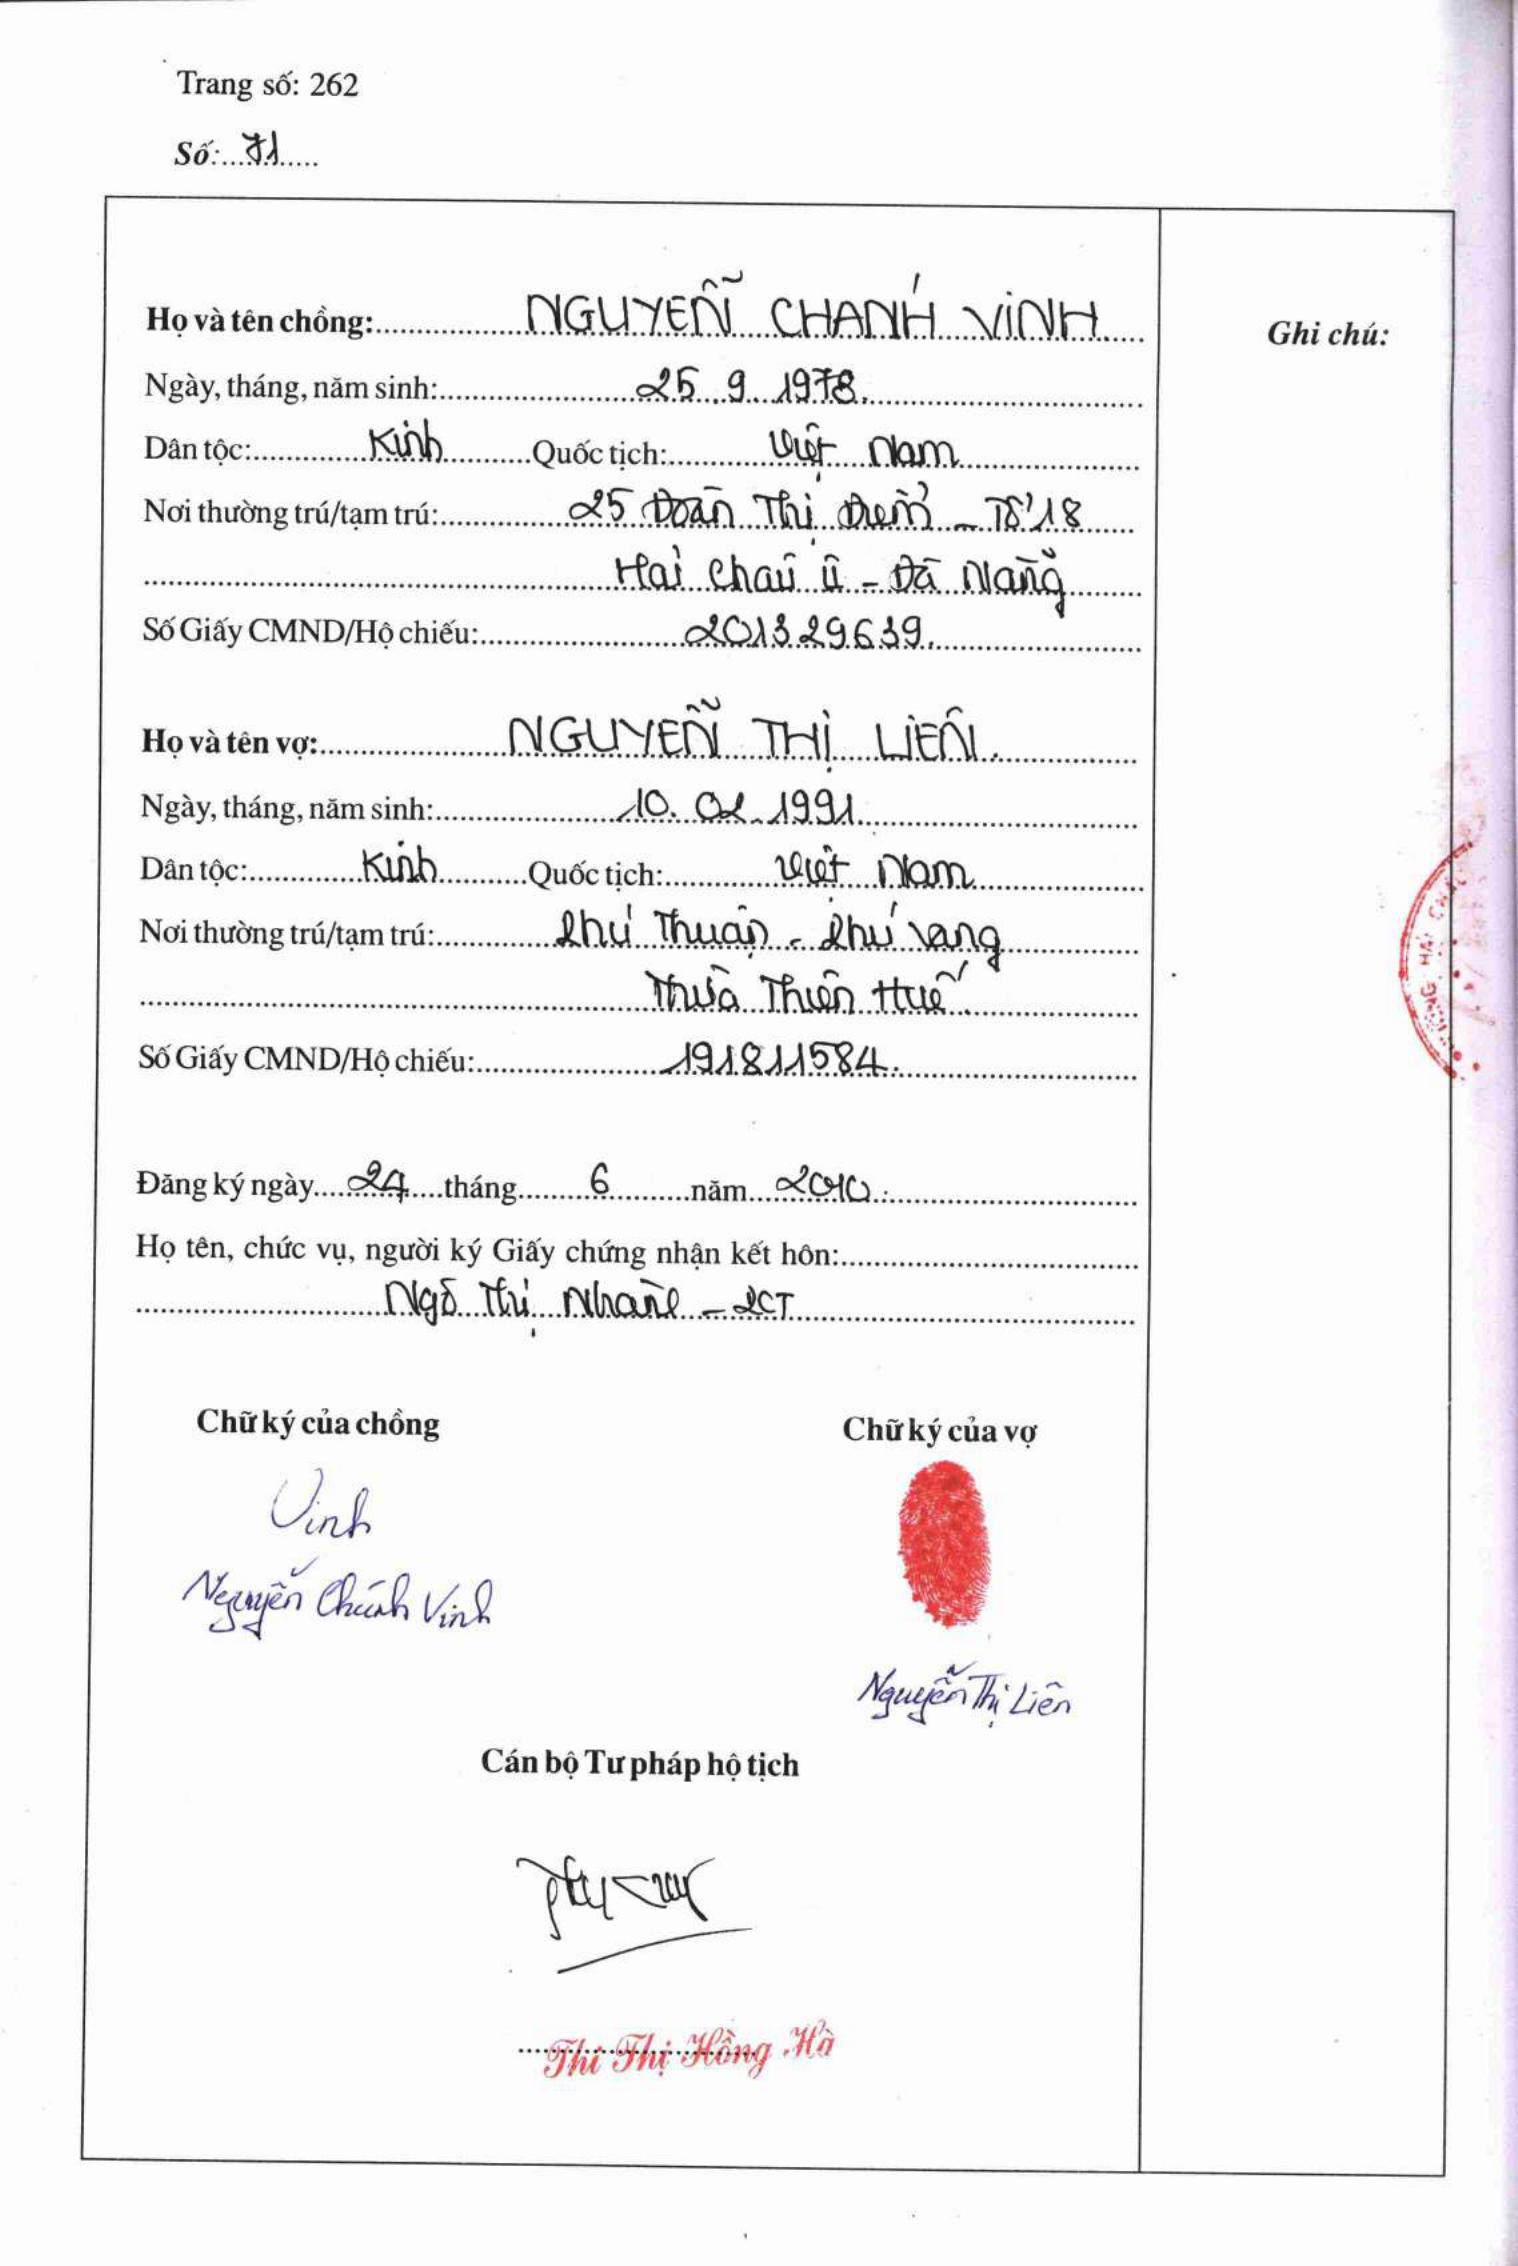 Trang số: 262
Số: 71
Họ và tên chồng: NGUYỄN CHÁNH VINH
Ghi chú:
Ngày, tháng, năm sinh: 25.9.1978.
Dân tộc: Kinh Quốc tịch: Việt Nam
Nơi thường trú/tạm trú: 25 Đoàn Thị Điểm - Tổ 18
Hải Châu II - Đà Nẵng
Số Giấy CMND/Hộ chiếu: 201329639.
Họ và tên vợ: NGUYỄN THỊ LIÊN.
Ngày, tháng, năm sinh: 10.02.1991
Dân tộc: Kinh Quốc tịch: Việt Nam
Nơi thường trú/tạm trú: Phú Thuận - Phú Vang
Thừa Thiên Huế.
Số Giấy CMND/Hộ chiếu: 191811584.
Đăng ký ngày 24 tháng 6 năm 2010.
Họ tên, chức vụ, người ký Giấy chứng nhận kết hôn:
Ngô Thị Nhàn - PCT
Chữ ký của chồng
Chữ ký của vợ
Vinh
Nguyễn Chánh Vinh
Nguyễn Thị Liên
Cán bộ Tư pháp hộ tịch
Thi Thị Hồng Hà